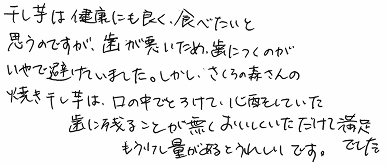 干し芋は健康にも良く、食べたいと
思うのですが、歯が悪いため、歯につくのが
いやで避けていました。しかし、さくらの森さんの
焼き干し芋は、口の中でとろけて、心配していた
歯に残ることが無くおいしくいただけて満足
でした
もう少し量があるとうれしいです。